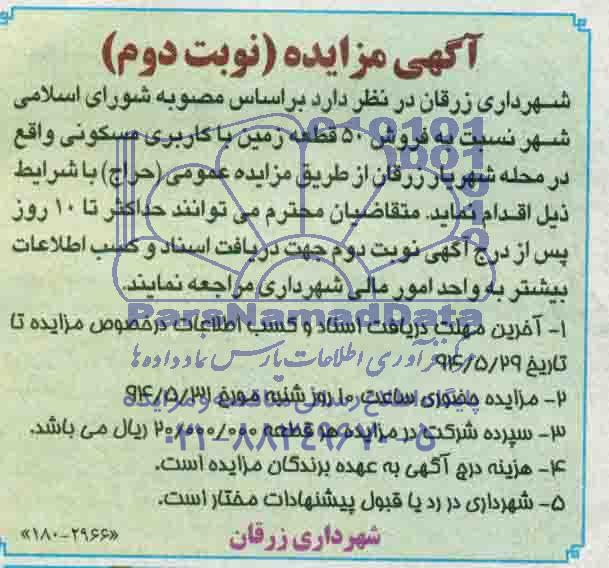 آگهی مزایده (نوبت دوم)
شهرداری زرقان در نظر دارد براساس مصوبه شورای اسلامی
شهر نسبت به فروش ۵۰ قطعه زمین با کاربری مسکونی واقع
در محله شهریار زرقان از طریق مزایده عمومی (حراج) با شرایط
ذیل اقدام نماید. متقاضیان محترم می توانند حداکثر تا ۱۰ روز
پس از درج آگهی نوبت دوم جهت دریافت اسناد و کسب اطلاعات
بیشتر به واحد امور مالی شهرداری مراجعه نمایند.
ParsNamadData
۱- آخرین مهلت دریافت اسناد و کسب اطلاعات درخصوص مزایده تا
تاریخ ۹۴/۵/۲۹
مرکز فرآوری اطلاعات پارس نماد داده ها
۲- مزایده حضوری ساعت ۱۰ روز شنبه مورخ ۹۴/۵/۳۱
۳- سپرده شرکت در مزایده هر قطعه ۲۰/۰۰۰/۰۰۰ ریال می باشد.
۰۲۱-۸۸۳۴۹۶۷۰-۵
۴- هزینه درج آگهی به عهده برندگان مزایده است.
۵- شهرداری در رد یا قبول پیشنهادات مختار است.
شهرداری زرقان
«۱۸۰-۲۹۶۶»